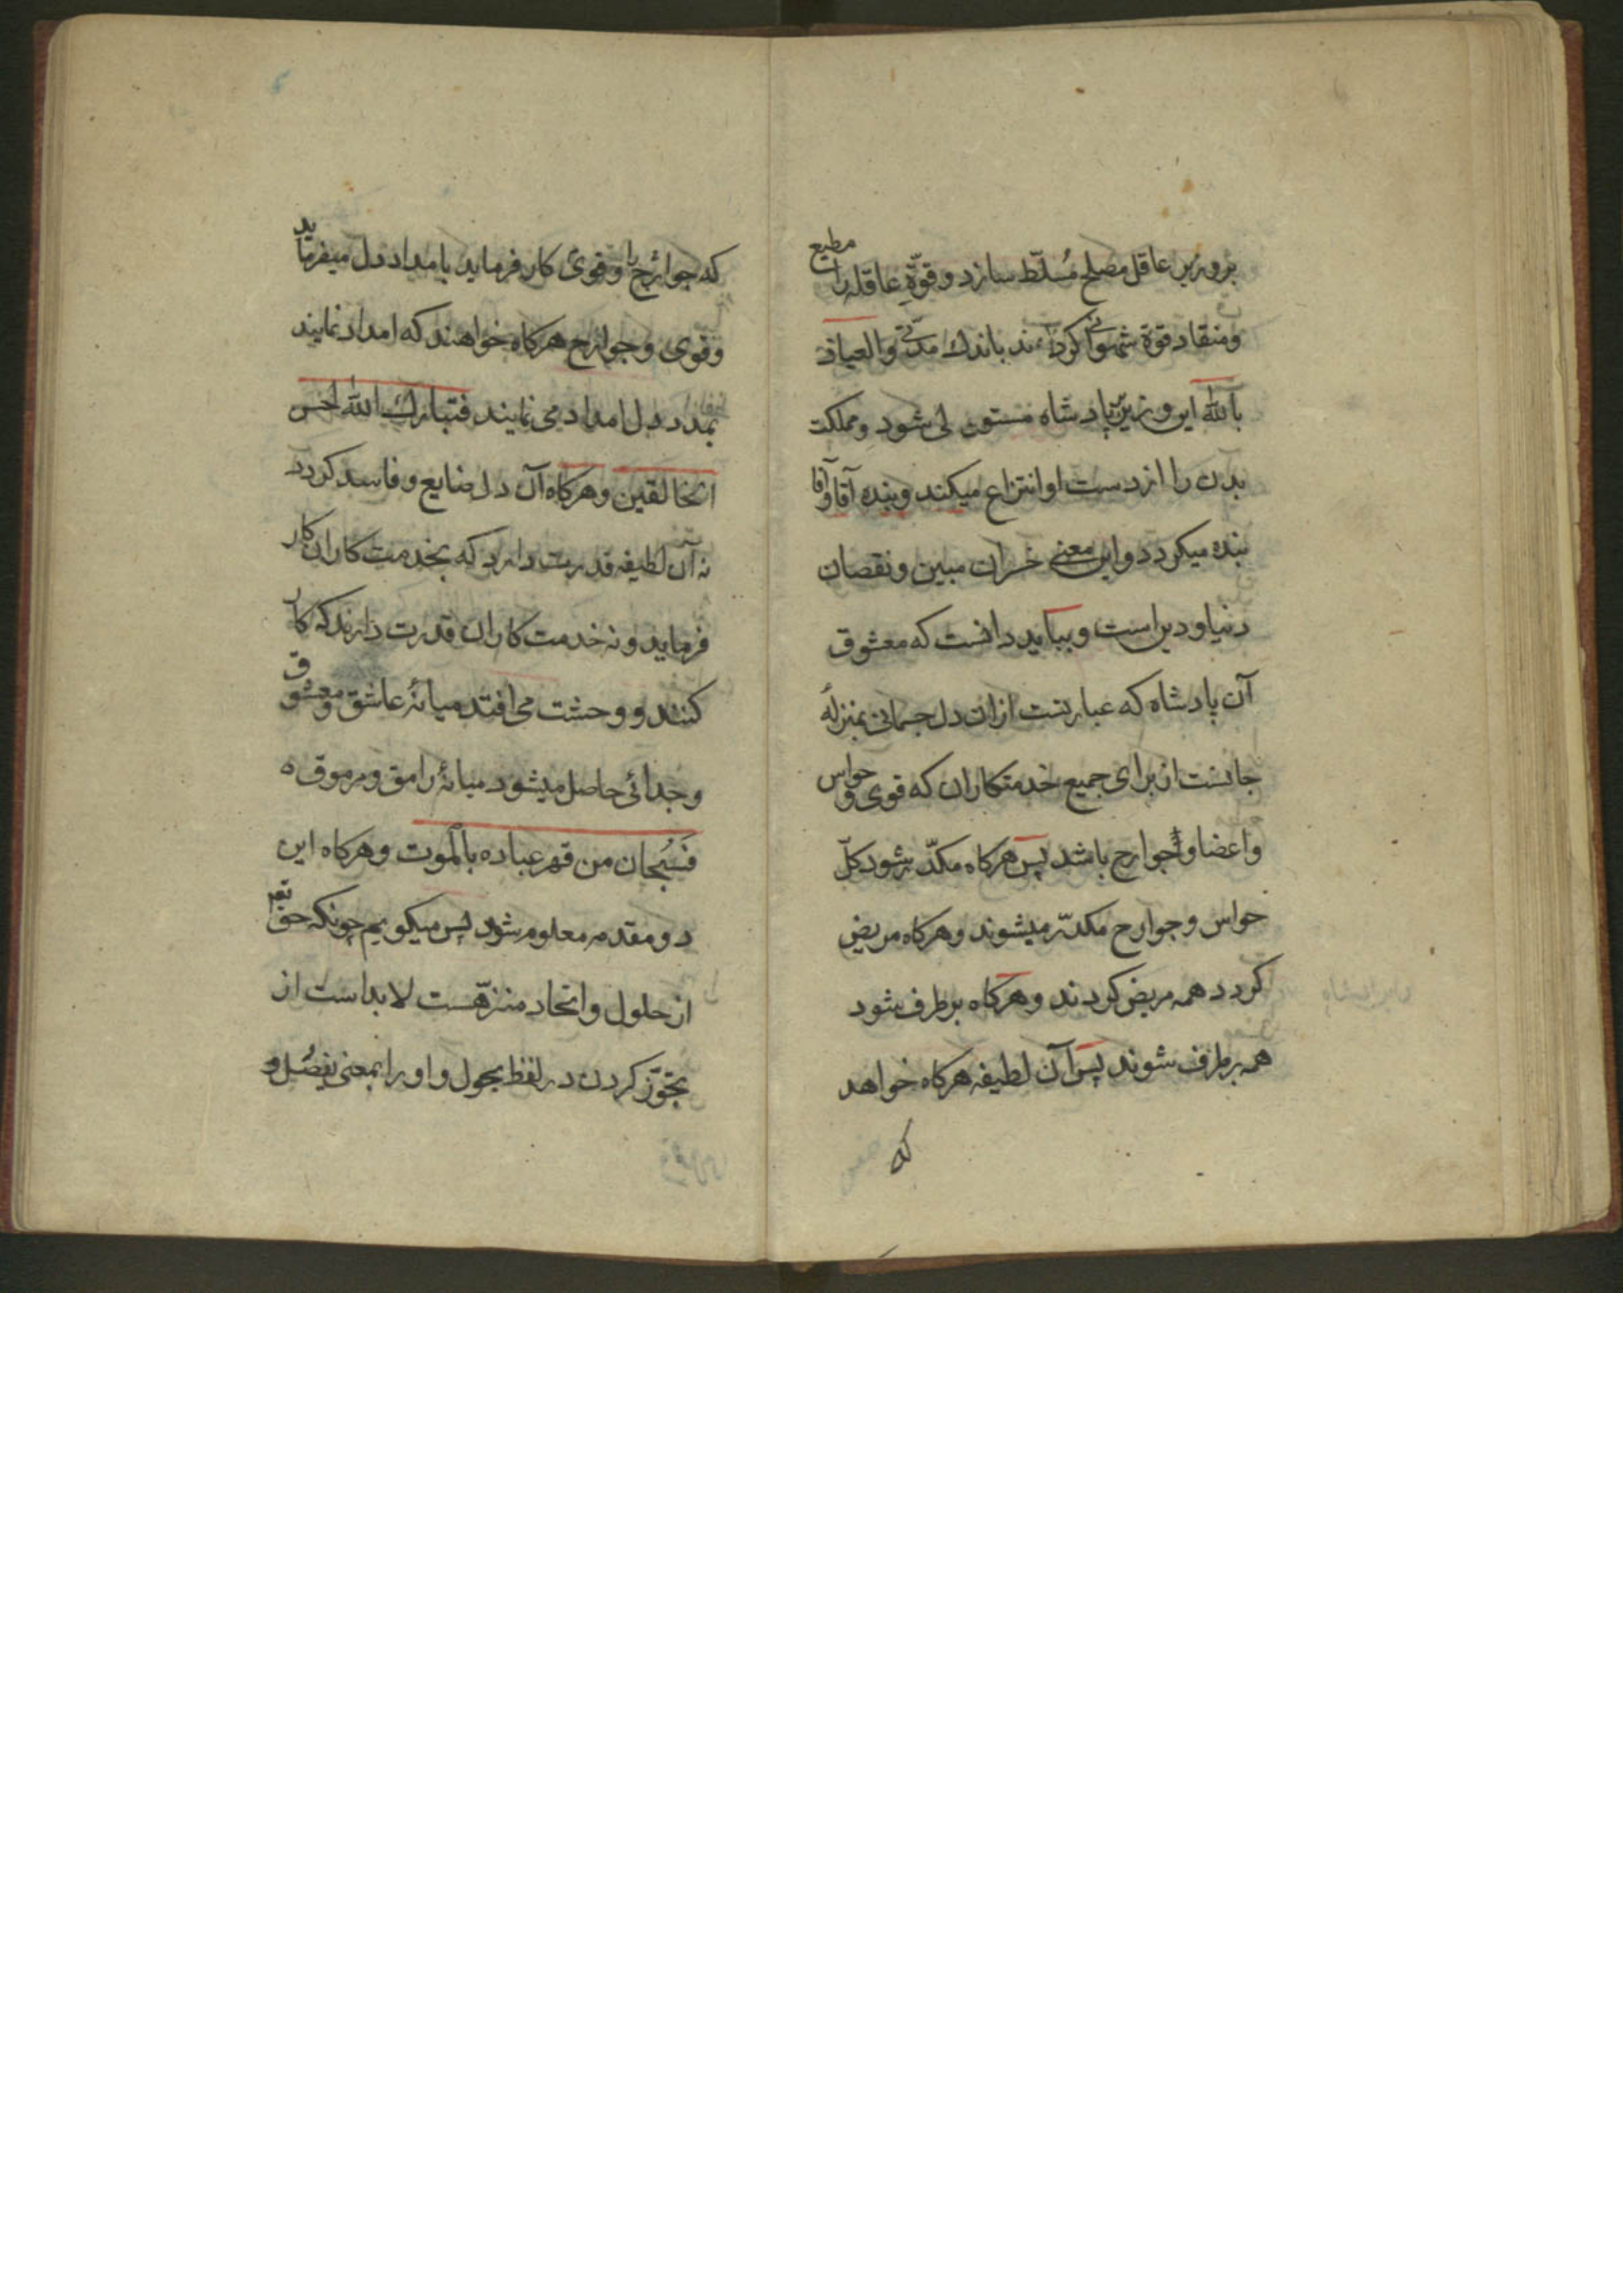 بروزیر عاقل مصلح مُسلّط سازد و قوّهٔ عاقله را مطیع
ومنقاد قوة شهوائی کرداند باندك مدّتی والعیاذ
بالله این وزیر بر پادشاه مستولی شود و مملکت
بدن را از دست او انتزاع میکند و بنده آقا و آقا
بنده میکردد و این معنی خسران مبین و نقصان
دنیا و دین است و بباید دانست که معشوق
آن پادشاه که عبارتست ازان دل جسمانی بمنزلهٔ
جانست از برای جمیع خدمتکاران که قوی و حواس
و اعضا و جوارح باشد پس هرکاه مکدّر شود کلّ
حواس و جوارح مکدّر میشوند و هرکاه مریض
کردد همه مریض کردند و هرکاه برطرف شود
همه برطرف شوند پس آن لطیفه هرکاه خواهد
که
که جوارح را و قوی کار فرماید بامداد دل میفرماید
و قوی و جوارح هرکاه خواهند که امداد نمایند
بمدد دل امداد می نمایند فتبارك الله احسن
الخالقین و هرکاه آن دل ضایع و فاسد کردد
نه آن لطیفه قدرت دارد که بخدمت کاران کار
فرماید و نه خدمت کاران قدرت دارند که کار
کنند و وحشت می افتد میانهٔ عاشق و معشوق
و جدائی حاصل میشود میانهٔ رامق و مرموق ه
فَسُبحان من قهر عباده بالموت و هرکاه این
دو مقدمه معلوم شد پس میکویم چونکه حق تعم
از حلول و اتحاد منزّهست لابداست از
تجوّز کردن در لفظ یحول و او را بمعنی یفصُل و